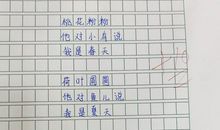 桃花粉粉
他对小鸟说
我是春天
荷叶圆圆
他对鱼儿说
我是夏天